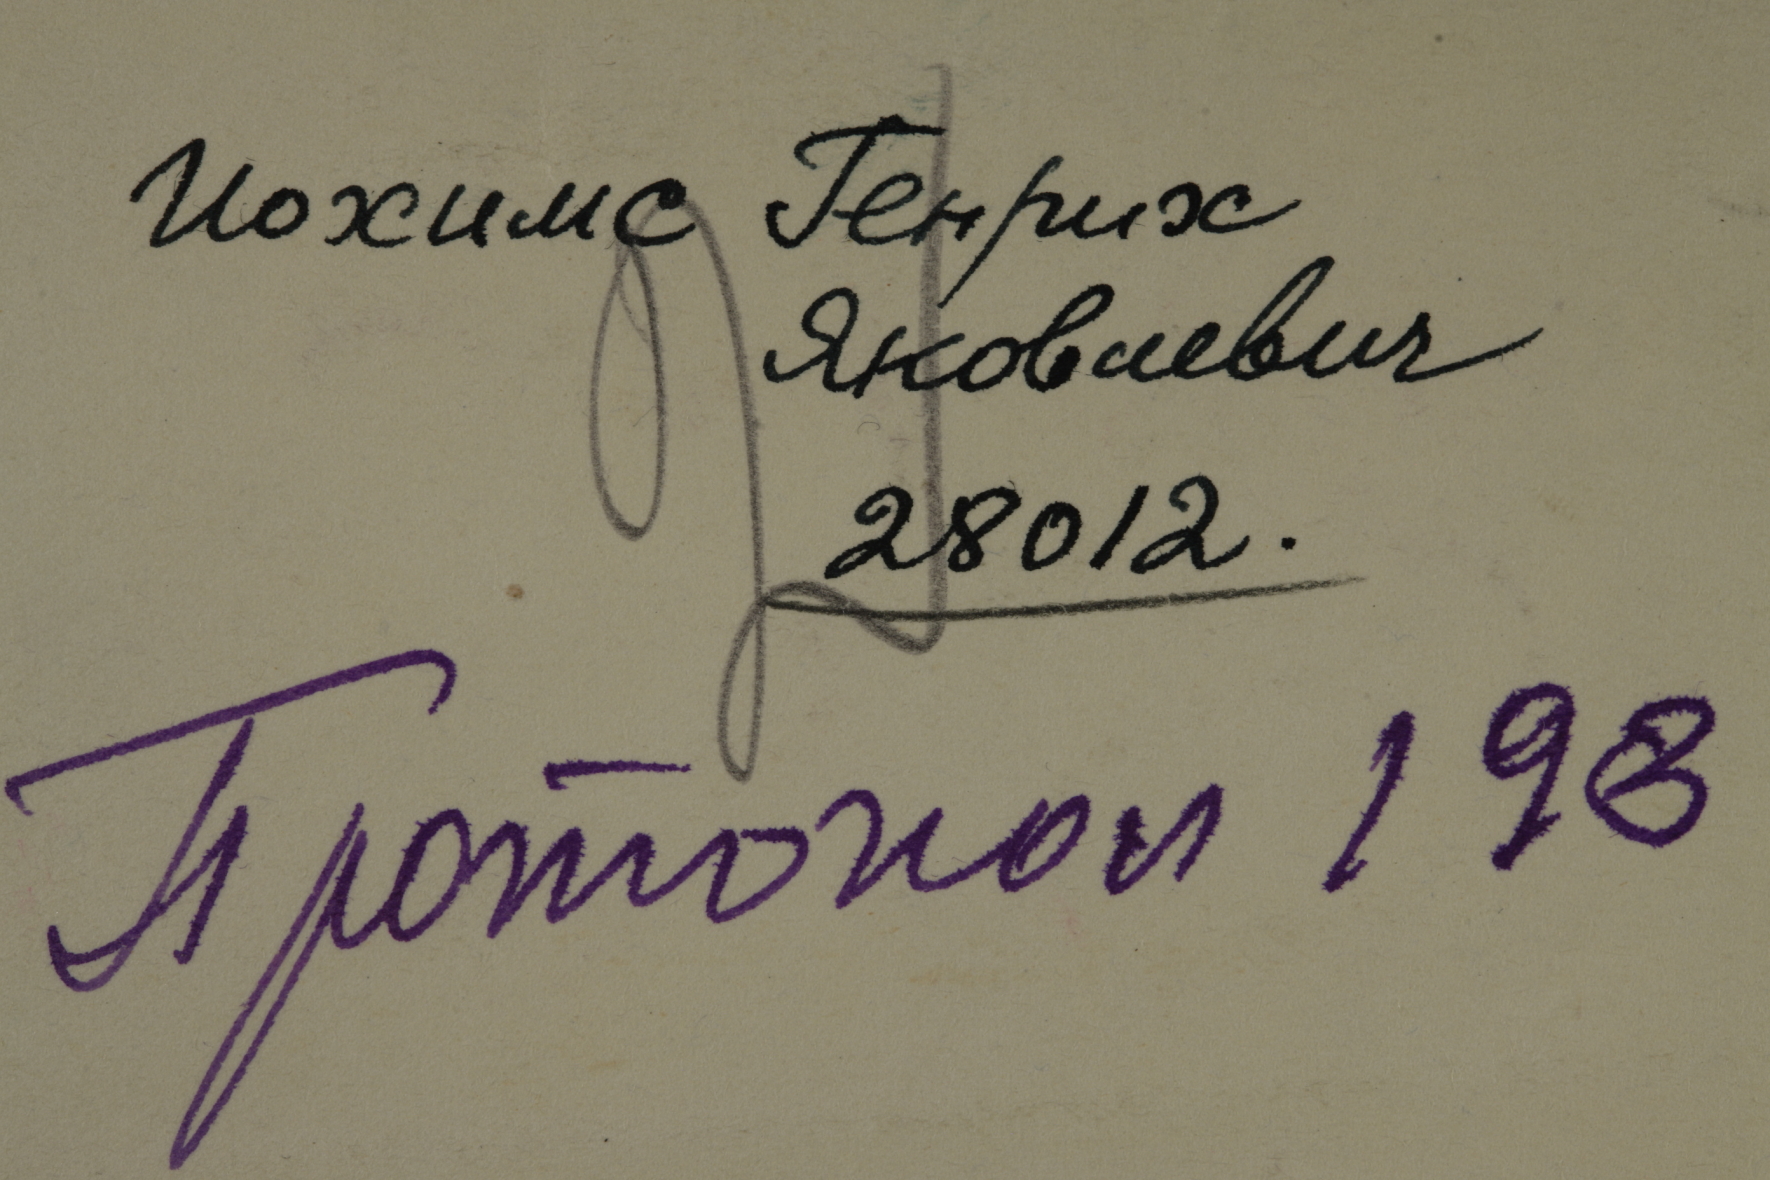 Иохимс Генрих
Яковлевич
28012.
Протокол 198